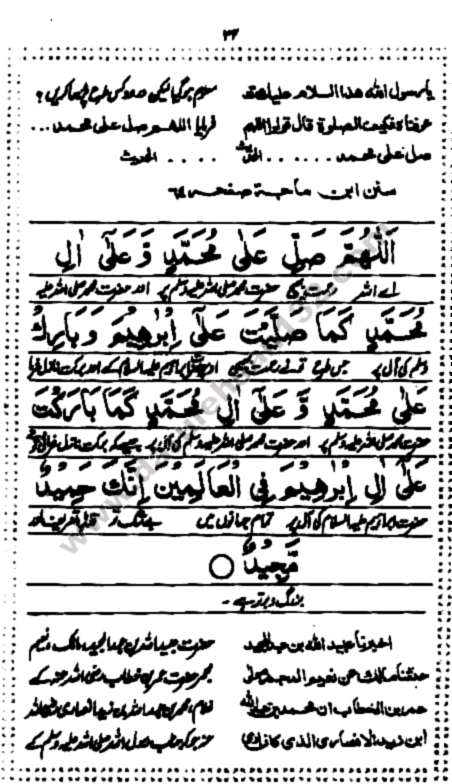 ۳۲
یا رسول اللہ ھذا السلام علیک قد
عرفناہ فکیف الصلوۃ قال قولوا اللھم
صل علی محمد . . . . . . الخ
سلام ہو گیا لیکن صلوٰۃ کس طرح پڑھا کریں؟
فرمایا اللھم صل علی محمد ...
. . . . الحدیث
سنن ابن ماجة صفحہ ٦٤
اَللّٰهُمَّ صَلِّ عَلٰی مُحَمَّدٍ وَّعَلٰٓی اٰلِ
اے اللہ رحمت بھیج حضرت محمد صلی اللہ علیہ وسلم پر اور حضرت محمد صلی اللہ علیہ
مُحَمَّدٍ كَمَا صَلَّیْتَ عَلٰٓی اِبْرٰهِیْمَ وَبَارِكْ
وسلم کی آل پر جس طرح تو نے رحمت بھیجی ابراہیم علیہ السلام کے اور برکت نازل فرما
عَلٰی مُحَمَّدٍ وَّعَلٰٓی اٰلِ مُحَمَّدٍ كَمَا بَارَكْتَ
حضرت محمد صلی اللہ علیہ وسلم پر اور حضرت محمد صلی اللہ علیہ وسلم کی آل پر جیسے کہ برکت نازل فرمائی
عَلٰٓی اٰلِ اِبْرٰهِیْمَ فِی الْعَالَمِیْنَ اِنَّكَ حَمِیْدٌ
حضرت ابراہیم علیہ السلام کی آل پر تمام جہانوں میں بے شک تو قابل تعریف اور
مَّجِیْدٌ
بزرگ و برتر ہے ۔
اخبرنا عبید اللہ بن عبد المجید
حدثنا مالک عن نعیم المجمر مولی
عمر بن الخطاب ان محمد بن عبد اللہ
ابن زید الانصاری الذی کان
حضرت عبید اللہ بن عبد المجید، مالک، نعیم
مجمر حضرت عمر بن خطاب رضی اللہ عنہ کے
غلام، محمد بن عبد اللہ بن زید انصاری رضی اللہ
عنہ جو کہ جناب رسول اللہ صلی اللہ علیہ وسلم کے